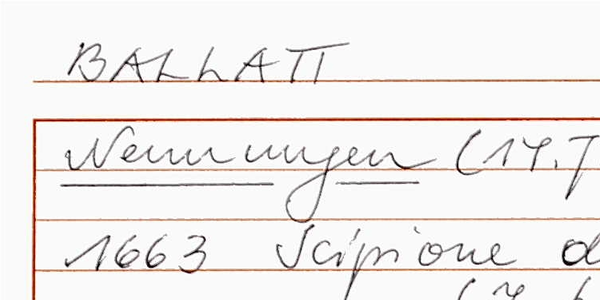 BALLATI
Nennungen (14.J
1663 Scipione d